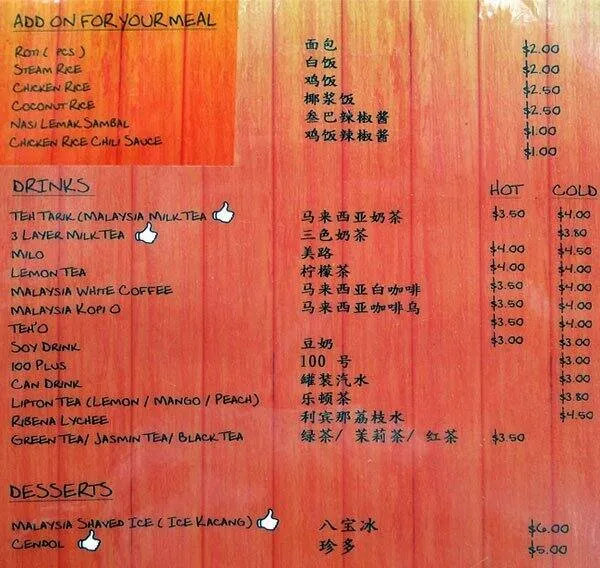 ADD ON FOR YOUR MEAL
ROTI ( PCS ) 面包 $2.00
STEAM RICE 白饭 $2.00
CHICKEN RICE 鸡饭 $2.50
COCONUT RICE 椰浆饭 $2.50
NASI LEMAK SAMBAL 叁巴辣椒酱 $1.00
CHICKEN RICE CHILI SAUCE 鸡饭辣椒酱 $1.00
DRINKS HOT COLD
TEH TARIK (MALAYSIA MILK TEA 马来西亚奶茶 $3.50 $4.00
3 LAYER MILK TEA 三色奶茶 $3.80
MILO 美路 $4.00 $4.50
LEMON TEA 柠檬茶 $4.00 $4.00
MALAYSIA WHITE COFFEE 马来西亚白咖啡 $3.50 $4.00
MALAYSIA KOPI O 马来西亚咖啡乌 $3.50 $4.00
TEH'O $3.50 $4.00
SOY DRINK 豆奶 $3.00 $3.00
100 PLUS 100 号 $3.00
CAN DRINK 罐装汽水 $3.00
LIPTON TEA (LEMON / MANGO / PEACH) 乐顿茶 $3.80
RIBENA LYCHEE 利宾那荔枝水 $4.50
GREEN TEA/ JASMIN TEA/ BLACK TEA 绿茶/ 茉莉茶/ 红茶 $3.50
DESSERTS
MALAYSIA SHAVED ICE ( ICE KACANG) 八宝冰 $6.00
CENDOL 珍多 $5.00